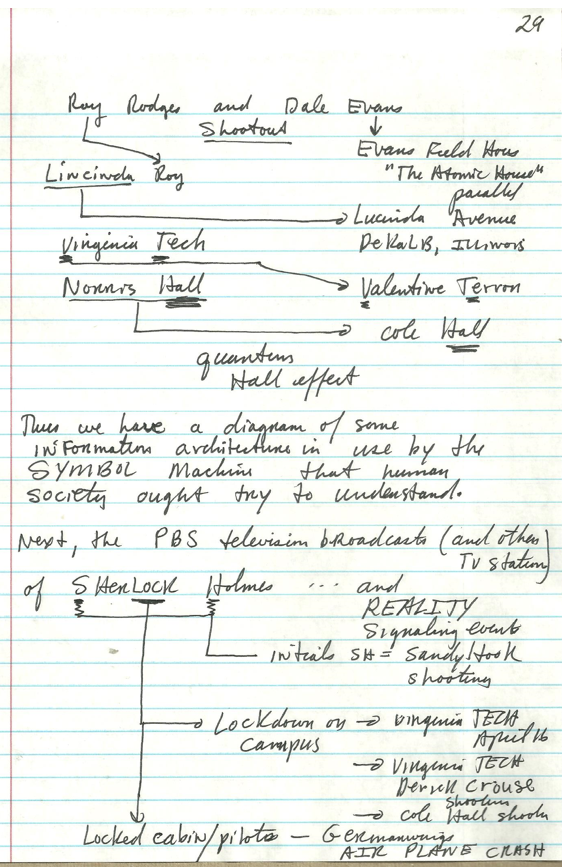 29
Roy Rodges and Dale Evans
Shootout
Evans Field Hous
"The Atomic House"
Lincinda Roy
parallel
Lucinda Avenue
Virginia Tech
DeKaLB, Illinois
Norris Hall
Valentine Terron
cole Hall
quantum
Hall effect
Thus we have a diagram of some
information architecture in use by the
SYMBOL Machine that human
society ought try to understand.
Next, the PBS television broadcasts (and other
TV station)
of SHerLOCK Holmes ... and
REALITY
Signaling event
initials SH = Sandy Hook
shooting
Lockdown on → Virginia TECH
campus
April 16
→ Virginia TECH
Derick Crouse
shooting
→ cole Hall shootin
Locked cabin/pilots – Germanwings
AIR PLANE CRASH